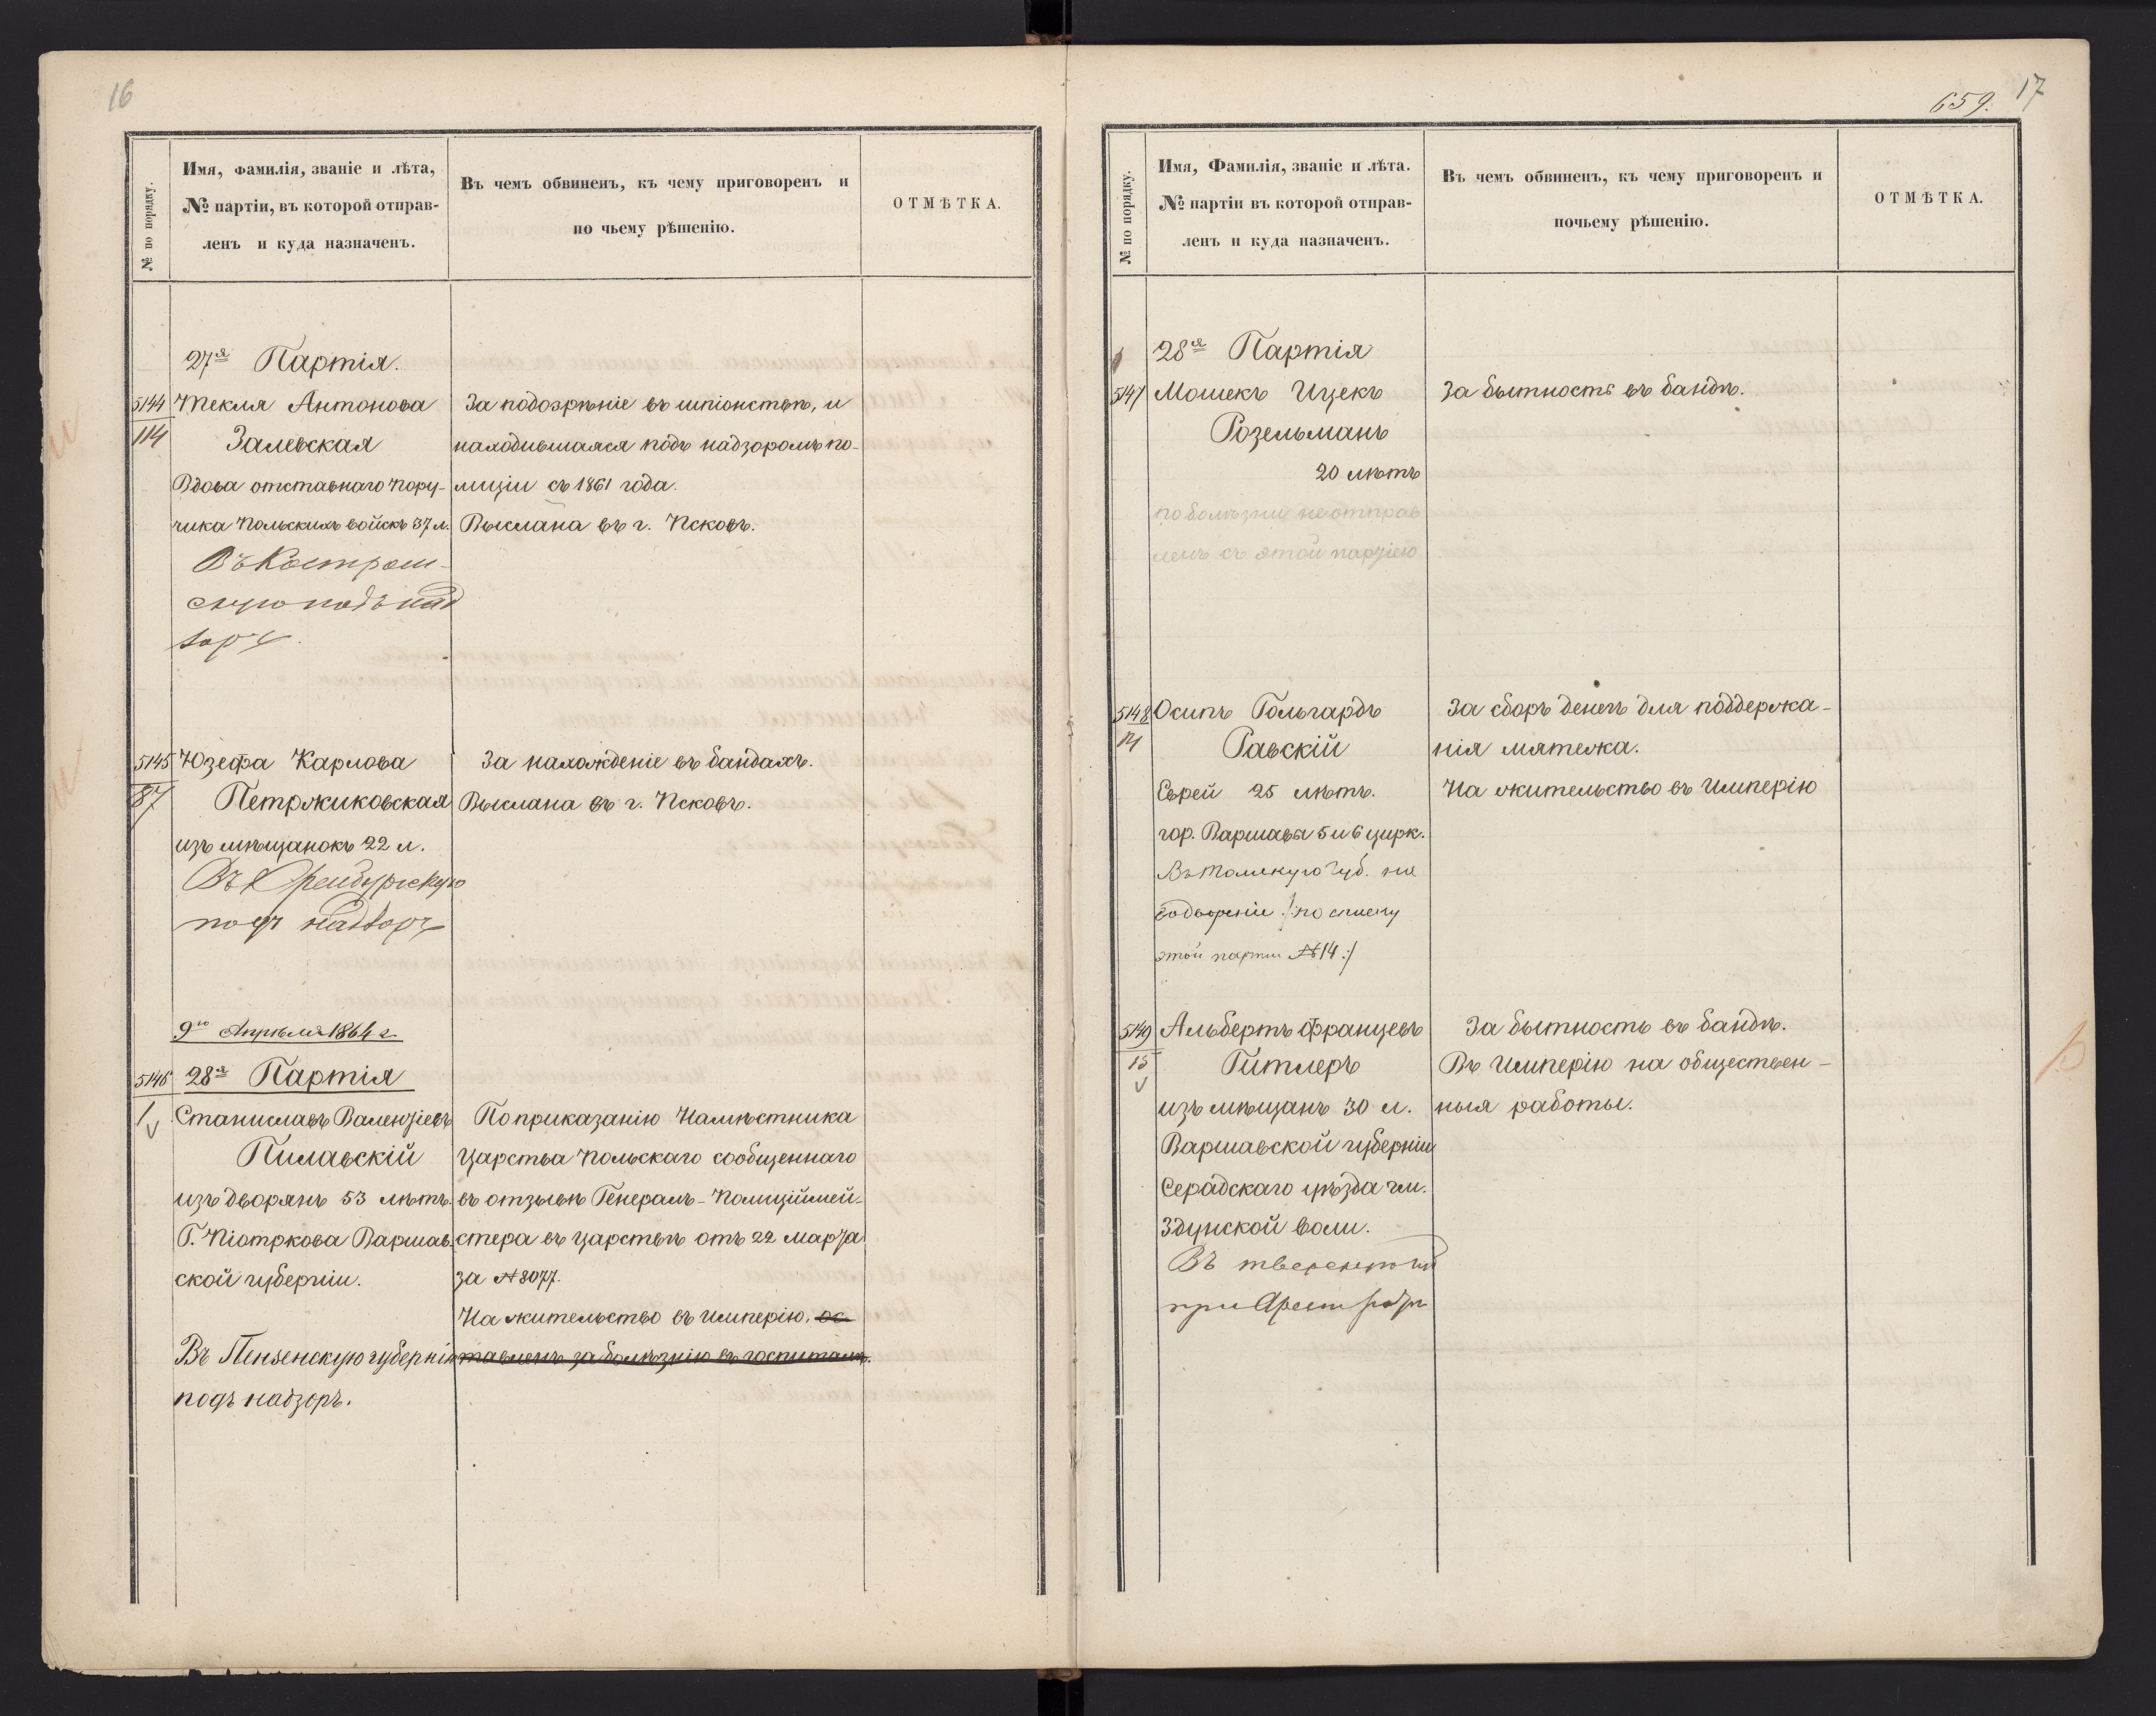 16
№ по порядку.
Имя, фамилія, званіе и лѣта,
№ партіи, въ которой отправ-
ленъ и куда назначенъ.
Въ чемъ обвиненъ, къ чему приговоренъ и
по чьему рѣшенію.
ОТМѢТКА.
27я Партія.
5144
114
Текля Антонова
Залевская
Вдова отставнаго пору-
чика Польскихъ войскъ 37 л.
Въ Костром-
скую подъ над
зоръ.
За подозрѣніе въ шпіонствѣ, и
находившаяся подъ надзоромъ по-
лиціи съ 1861 года.
Выслана въ г. Псковъ.
5145
87
Юзефа Карлова
Петржиковская
изъ мѣщанокъ 22 л.
Въ Оренбургскую
подъ надзоръ
За нахожденіе въ бандахъ.
Выслана въ г. Псковъ.
9го Апрѣля 1864 г.
28я Партія
5146
1
Станиславъ Валентіевъ
Пилавскій
изъ дворянъ 53 лѣтъ.
Г. Піотркова Варшав-
ской губерніи.
Въ Пензенскую губернію
подъ надзоръ.
По приказанію Намѣстника
Царства Польскаго сообщеннаго
въ отзывѣ Генералъ-Полиціймей-
стера въ Царствѣ отъ 22 марта
за № 8077.
На жительство въ Имперію. ос-
тавленъ за болѣзнію въ госпиталѣ.
659.
17
№ по порядку.
Имя, Фамилія, званіе и лѣта.
№ партіи въ которой отправ-
ленъ и куда назначенъ.
Въ чемъ обвиненъ, къ чему приговоренъ и
почьему рѣшенію.
ОТМѢТКА.
28я Партія
5147
Мошекъ Ицекъ
Розельманъ
20 лѣтъ
по болѣзни не отправ
ленъ съ этой партіею
За бытность въ бандѣ.
5148
14
Осипъ Гольгардъ
Равскій
Еврей 25 лѣтъ.
гор. Варшавы 5 и 6 цирк.
Въ Томскую губ. на
водвореніе /: по списку
этой партіи № 14 :/
За сборъ денегъ для поддержа-
нія мятежа.
На жительство въ Имперію
5149
15
Альбертъ Францевъ
Гитлеръ
изъ мѣщанъ 30 л.
Варшавской губерніи
Серадскаго уѣзда гм.
Здунской воли.
Въ тверскую
при Арест
За бытность въ бандѣ.
Въ Имперію на обществен-
ныя работы.